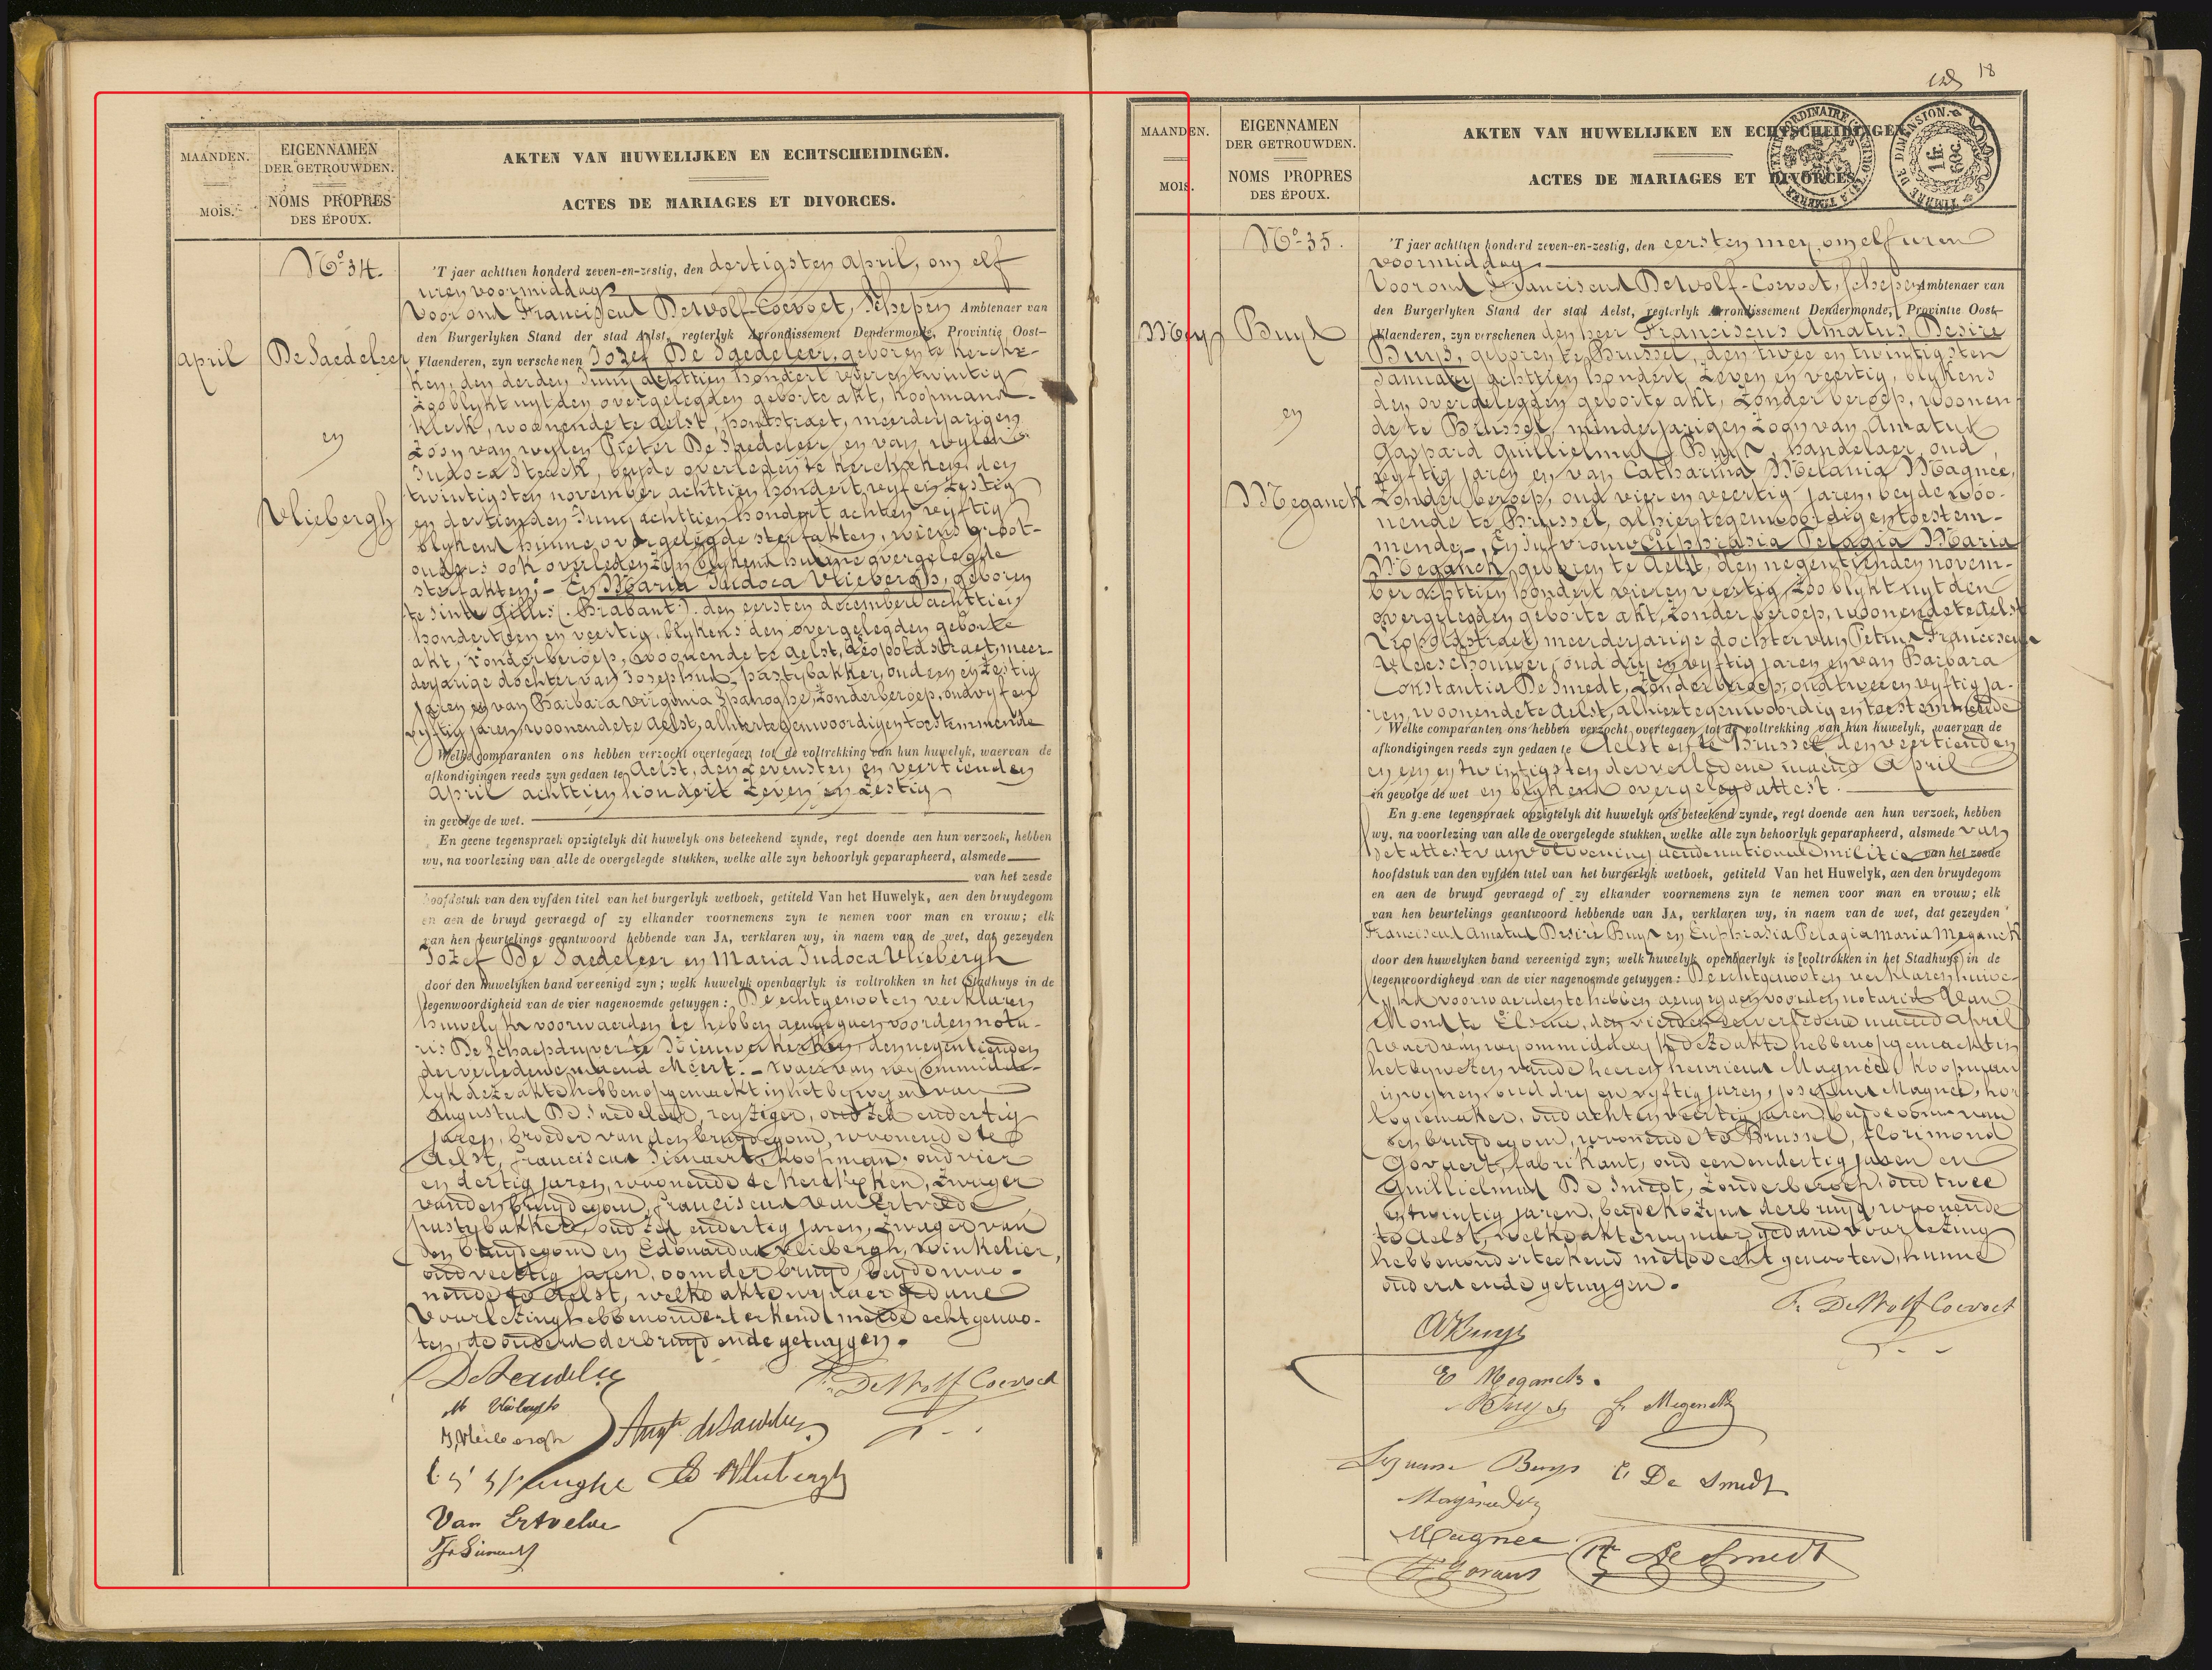 18
MAANDEN.
MOIS.
EIGENNAMEN
DER GETROUWDEN.
NOMS PROPRES
DES ÉPOUX.
AKTEN VAN HUWELIJKEN EN ECHTSCHEIDINGEN.
ACTES DE MARIAGES ET DIVORCES.
No 34.
April
De Saedeleer
en
Vliebergh
'T jaer achttien honderd zeven-en-zestig, den dertigsten April, om elf
uren voormiddag
Voor ons Franciscus Dewolf-Coevoet, Schepen Ambtenaer van
den Burgerlyken Stand der stad Aelst, regterlyk Arrondissement Dendermonde, Provintie Oost-
Vlaenderen, zyn verschenen Jozef De Saedeleer, geboren te Kerckx-
ken, den derden Juny achttien hondert vyf en twintig
zoo blykt uyt den overgelegden geborte akt, koopmans-
klerk, woonende te Aelst, pontstraet, meerderjarigen
zoon van wylen Pieter De Saedeleer en van wylen
Judoca Sterck, beyde overleden te Kerckxken, den
twintigsten november achttien hondert vyf en zestig
en dertienden Juny achttien hondert acht en vyftig
blykens hunne overgelegde sterfakten, wiens groot-
ouders ook overleden zyn blykens hunne overgelegde
sterfakten; - En Maria Judoca Vliebergh, geboren
te Sinte Gillis (Brabant) den eersten december achttien
hondert een en veertig, blykens den overgelegden geborte
akt, zonder beroep, woonende te Aelst, Leopoldstraet, meer-
derjarige dochter van Josephus, pastybakker, oud een en zestig
jaren en van Barbara Virginia Spanoghe, zonder beroep, oud vyf en
vyftig jaren, woonende te Aelst, alhier tegenwoordig en toestemmende
Welke comparanten ons hebben verzocht overtegaen tot de voltrekking van hun huwelyk, waervan de
afkondigingen reeds zyn gedaen te Aelst, den zevensten en veertienden
April achttien hondert zeven en zestig
in gevolge de wet.
En geene tegenspraek opzigtelyk dit huwelyk ons beteekend zynde, regt doende aen hun verzoek, hebben
wy, na voorlezing van alle de overgelegde stukken, welke alle zyn behoorlyk geparapheerd, alsmede
van het zesde
hoofdstuk van den vyfden titel van het burgerlyk wetboek, getiteld Van het Huwelyk, aen den bruydegom
en aen de bruyd gevraegd of zy elkander voornemens zyn te nemen voor man en vrouw; elk
van hen beurtelings geantwoord hebbende van JA, verklaren wy, in naem van de wet, dat gezeyden
Jozef De Saedeleer en Maria Judoca Vliebergh
door den huwelyken band vereenigd zyn; welk huwelyk openbaerlyk is voltrokken in het Stadhuys in de
tegenwoordigheid van de vier nagenoemde getuygen: De echtgenooten verklaren
huwelyks voorwaerden te hebben aengegaen voor den nota-
ris De Schaepdryver te Nieuwerkerken, den negentienden
der verledene maend Meert. - Waervan wy onmidde-
lyk deze akte hebben opgemaekt in het bywezen van
Augustus De Saedeleer, reyziger, oud zes en dertig
jaren, broeder van den bruydegom, woonende te
Aelst, Franciscus Sienaert, koopman, oud vier
en dertig jaren, woonende te Kerckxken, zwager
van den bruydegom, Franciscus Van Ertvelde
pastybakker, oud zes en dertig jaren, zwager van
den bruydegom en Edouardus Vliebergh, winkelier,
oud veertig jaren, oom der bruyd, beyde woo-
nende te Aelst, welke akte wy naer gedane
voorlezing hebben onderteekend met de echtgenoo-
ten, de ouders der bruyd en de getuygen.
DeSaedeleer
F. DeWolf Coevoet
M Vliebergh
J Vliebergh
Augte deSaedeleer
E Vliebergh
Van Ertvelde
MAANDEN.
MOIS.
EIGENNAMEN
DER GETROUWDEN.
NOMS PROPRES
DES ÉPOUX.
AKTEN VAN HUWELIJKEN EN ECHTSCHEIDINGEN.
ACTES DE MARIAGES ET DIVORCES.
TIMBRE DE DIMENSION.
1 fr.
60c.
No 35.
Mey
Buys
en
Meganck
'T jaer achttien honderd zeven-en-zestig, den eersten mey, om elf uren
voormiddag
Voor ons Franciscus Dewolf-Coevoet, Schepen Ambtenaer van
den Burgerlyken Stand der stad Aelst, regterlyk Arrondissement Dendermonde, Provintie Oost-
Vlaenderen, zyn verschenen den heer Franciscus Amatus Desire
Buys, geboren te Brussel, den twee en twintigsten
January achttien hondert zeven en veertig, blykens
den overgelegden geborte akt, zonder beroep, woonen-
de te Brussel, minderjarigen zoon van Amatus
Gaspard Guillielmus Buys, handelaer, oud
vyftig jaren en van Catharina Melania Magnee,
zonder beroep, oud vier en veertig jaren, beyde woo-
nende te Brussel, alhier tegenwoordig en toestem-
mende, - En Jufvrouw Euphrasia Pelagia Maria
Meganck, geboren te Aelst, den negentienden novem-
ber achttien hondert vier en veertig, zoo blykt uyt den
overgelegden geborte akt, zonder beroep, woonende te Aelst
Leopoldstraet, meerderjarige dochter van Petrus Franciscus
vleeschhouwer, oud dry en vyftig jaren en van Barbara
Constantia De Smedt, zonder beroep, oud twee en vyftig ja-
ren, woonende te Aelst, alhier tegenwoordig en toestemmende
Welke comparanten ons hebben verzocht overtegaen tot de voltrekking van hun huwelyk, waervan de
afkondigingen reeds zyn gedaen te Aelst en te Brussel den veertienden
en een en twintigsten der verledene maend April
in gevolge de wet en blykens overgelegd attest.
En geene tegenspraek opzigtelyk dit huwelyk ons beteekend zynde, regt doende aen hun verzoek, hebben
wy, na voorlezing van alle de overgelegde stukken, welke alle zyn behoorlyk geparapheerd, alsmede van
het attest van voldoening aen de nationale militie van het zesde
hoofdstuk van den vyfden titel van het burgerlyk wetboek, getiteld Van het Huwelyk, aen den bruydegom
en aen de bruyd gevraegd of zy elkander voornemens zyn te nemen voor man en vrouw; elk
van hen beurtelings geantwoord hebbende van JA, verklaren wy, in naem van de wet, dat gezeyden
Franciscus Amatus Desire Buys en Euphrasia Pelagia Maria Meganck
door den huwelyken band vereenigd zyn; welk huwelyk openbaerlyk is voltrokken in het Stadhuys in de
tegenwoordigheyd van de vier nagenoemde getuygen: De echtgenooten verklaren huwe-
lyks voorwaerden te hebben aengegaen voor den notaris Van
Mons te Elsene, den vierden der verledene maend April
Waervan wy onmiddelyk deze akte hebben opgemaekt in
het bywezen van de heeren henricus Magnée, koopman
in wynen, oud dry en vyftig jaren, Josephus Magnee, hor-
logiemaker, oud acht en veertig jaren, beyde ooms van
den bruydegom, woonende te Brussel, Florimond
Govaert, fabrikant, oud een en dertig jaren en
Guillielmus De Smedt, zonder beroep, oud twee
en twintig jaren, beyde kozyns der bruyd, woonende
te Aelst, welke akte wy naer gedane voorlezing
hebben onderteekend met de echtgenooten, hunne
ouders en de getuygen.
F. DeWolf Coevoet
ABuys
E Meganck.
Buys
F. Meganck
Buys
C De Smedt
Magnee
De Smedt